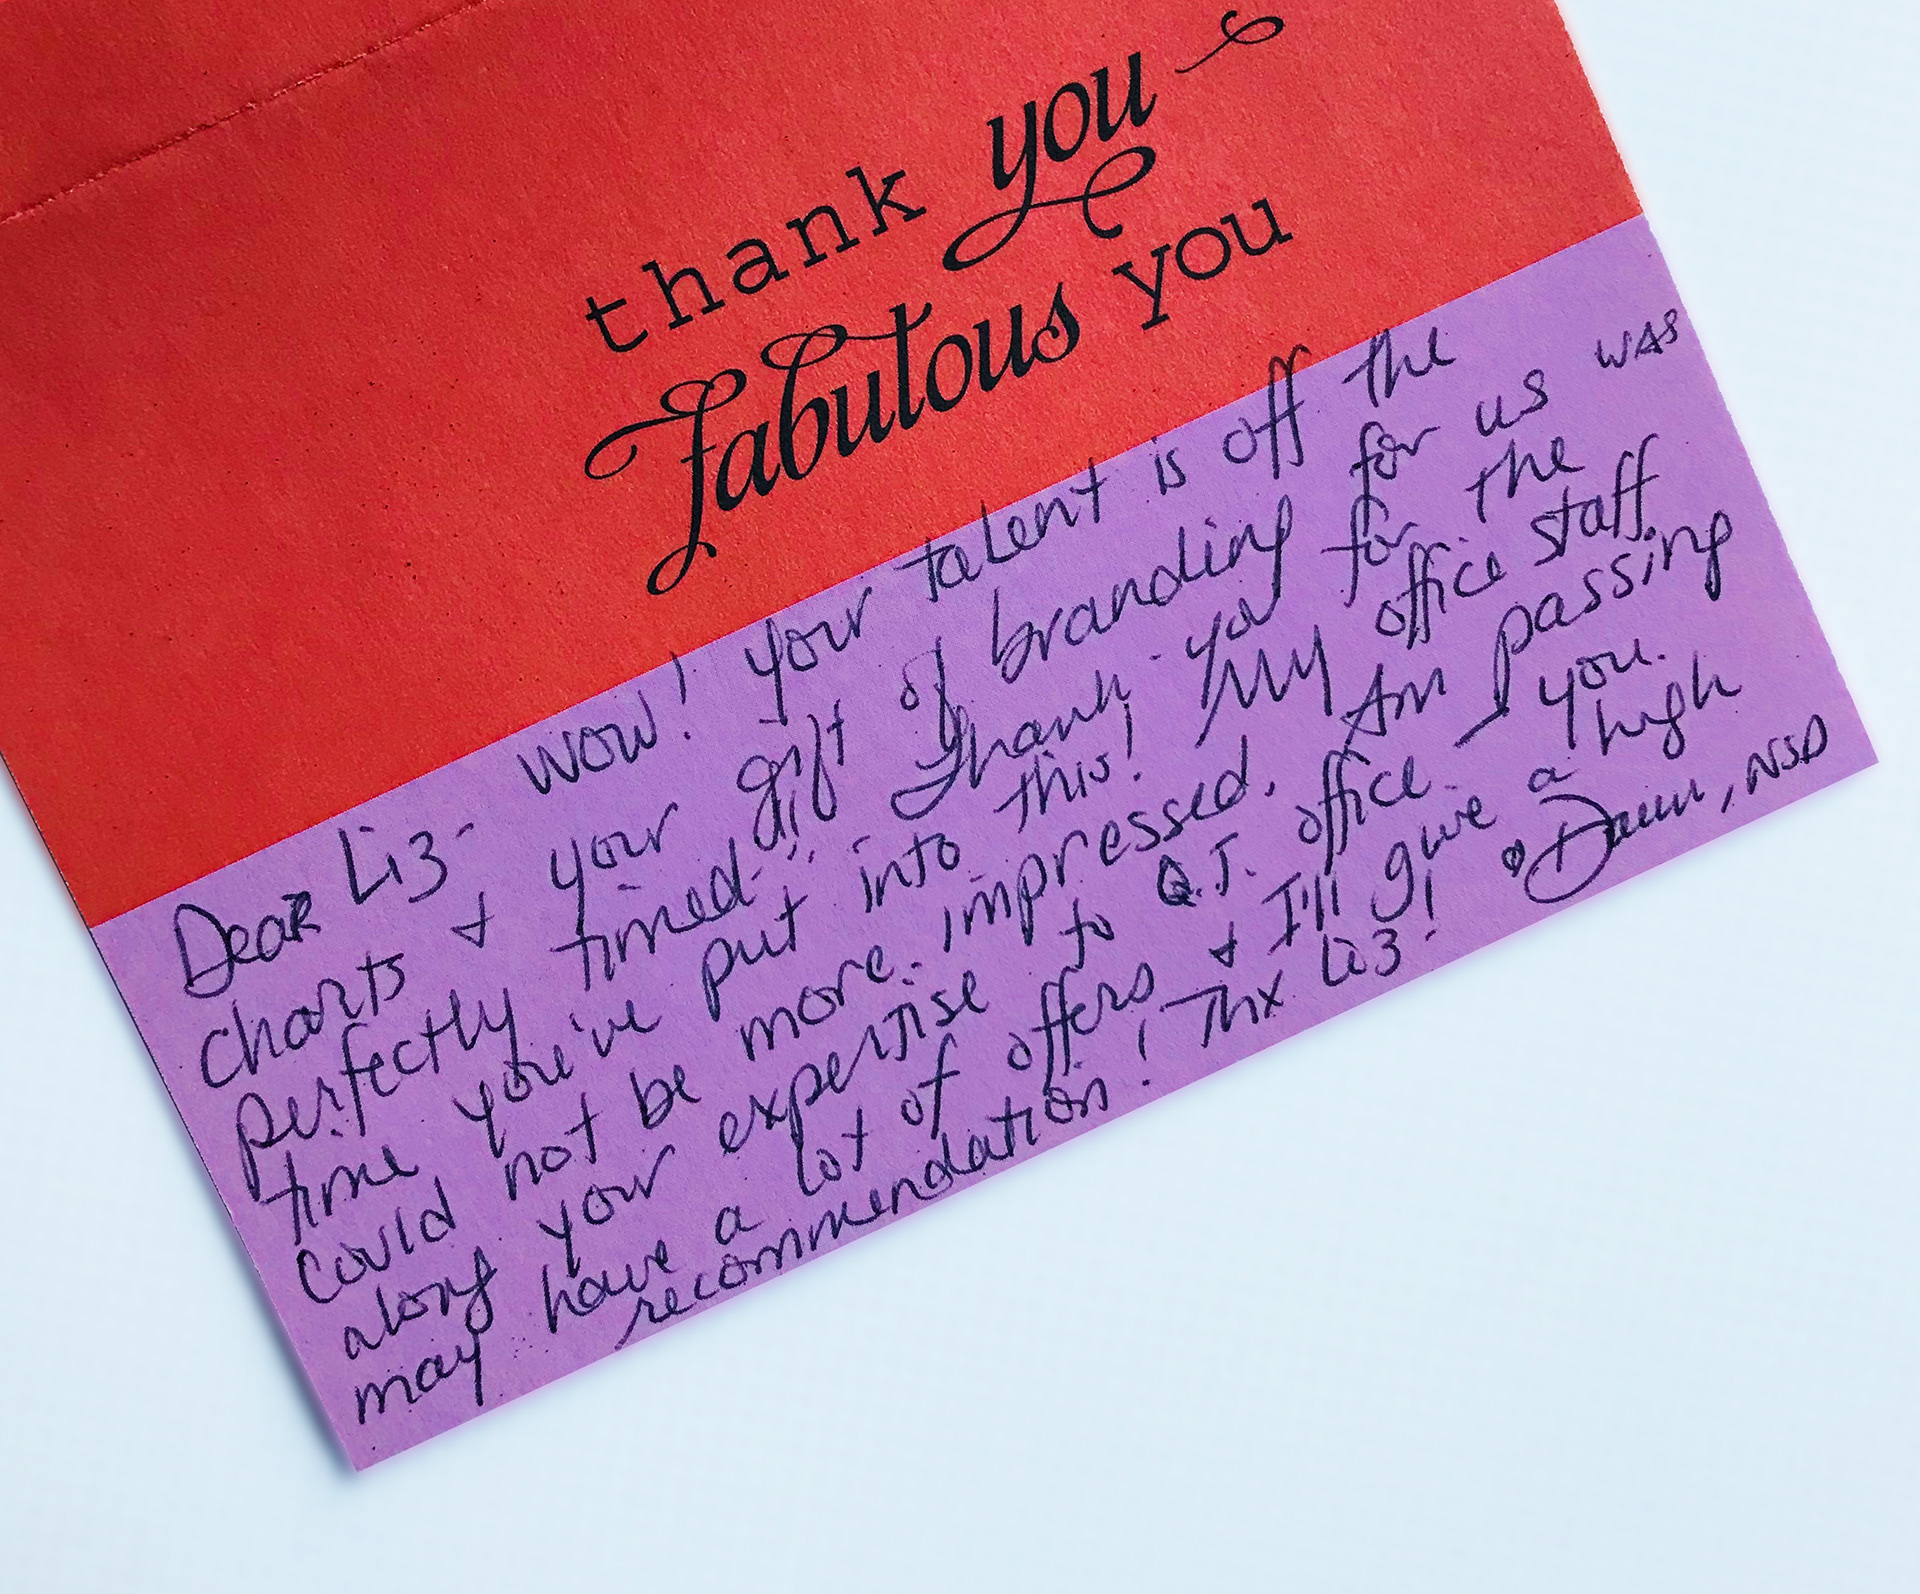 thank you
fabulous you
Dear Liz - WOW! Your talent is off the
charts & your gift of branding for us was
perfectly timed. Thank you for the
time you've put into this! My office staff
could not be more impressed. Am passing
along your expertise to Q.T. office - you
may have a lot of offers & I'll give a high
recommendation! Thx Liz! ♡ Dawn, NSD